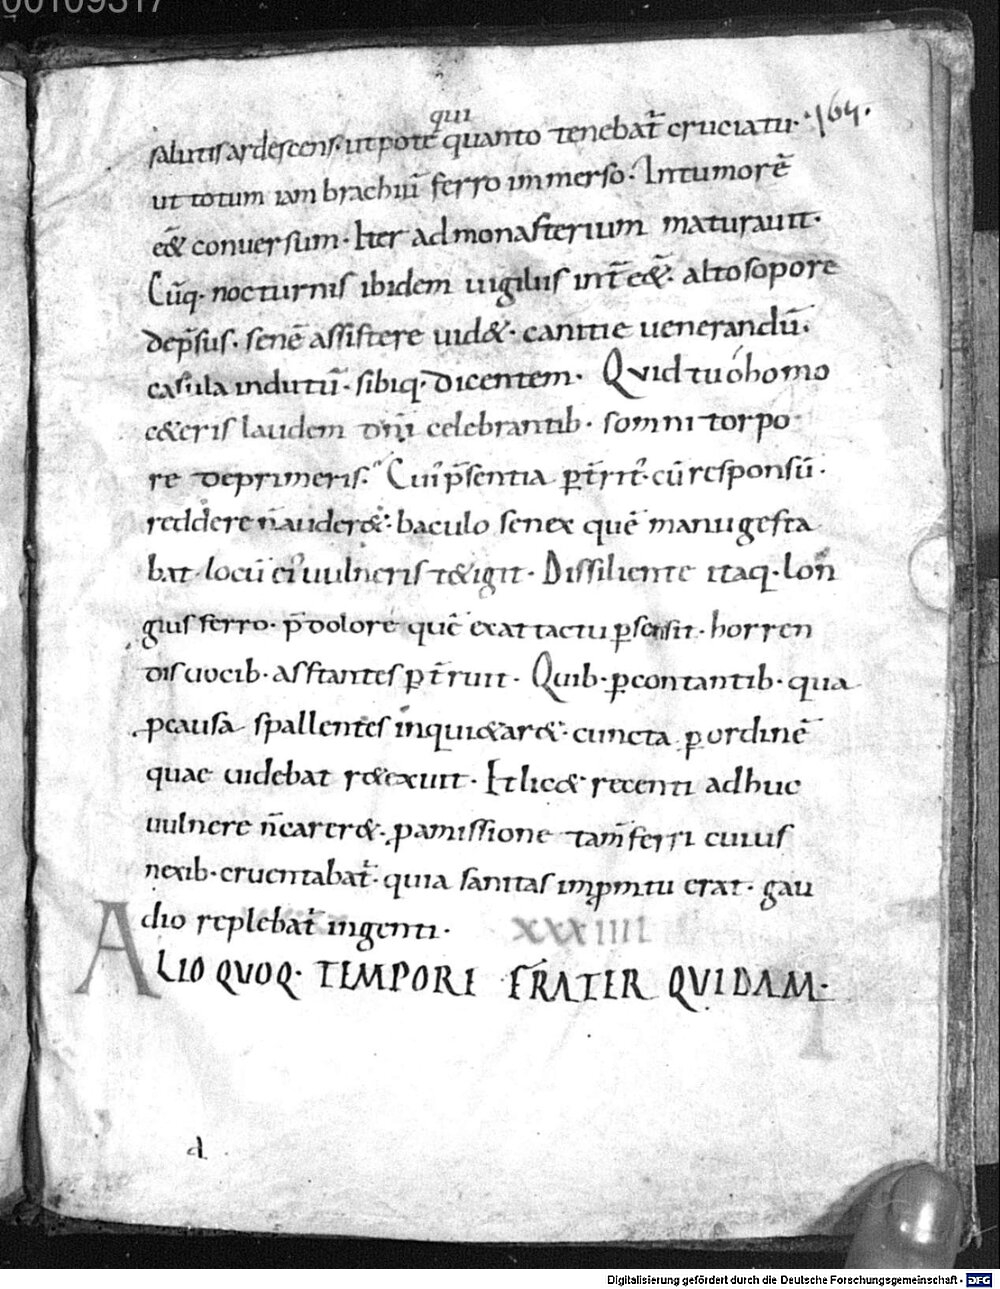 00109317
qui
salutis ardescens· utpote quanto tenebat̄ cruciatu· ·164·
ut totum iam brachiū ferro immerso· Intumorē
eē& conuersum· Iter admonasterium maturauit·
Cūq· nocturnis ibidem uigiliis int̄eē&· alto sopore
dep̄sus· senē assistere uid&· canitie uenerandū·
casula indutū· sibiq· dicentem· Quid tu óhomo
c&eris laudem dn̄i celebrantib· somni torpo
re deprimeris· Cui' p̄sentia ꝑt̄rit'· cū responsū·
reddere n̄ auder&· baculo senex quē manu gesta
bat· locū ei' uulneris t&igit· Dissiliente itaq· lon
gius ferro· p̄ dolore quē ex attactu ꝑsensit· horren
dis uocib· asstantes ꝑt̄ruit· Quib· ꝑcontantib· qua
ꝑcausa spallentes inqui&ar&· cuncta ꝑ ordinē
quae uidebat r&exuit· Et lic& recenti adhuc
uulnere n̄ carer&· ꝑ amissione tam̄ ferri cuius
nexib· cruentabat̄· quia sanitas imꝑtitu erat· gau
dio replebat̄ ingenti· XXXIIII
ALIO QUOQ· TEMPORE FRATER QVIDAM·
d
Digitalisierung gefördert durch die Deutsche Forschungsgemeinschaft - DFG